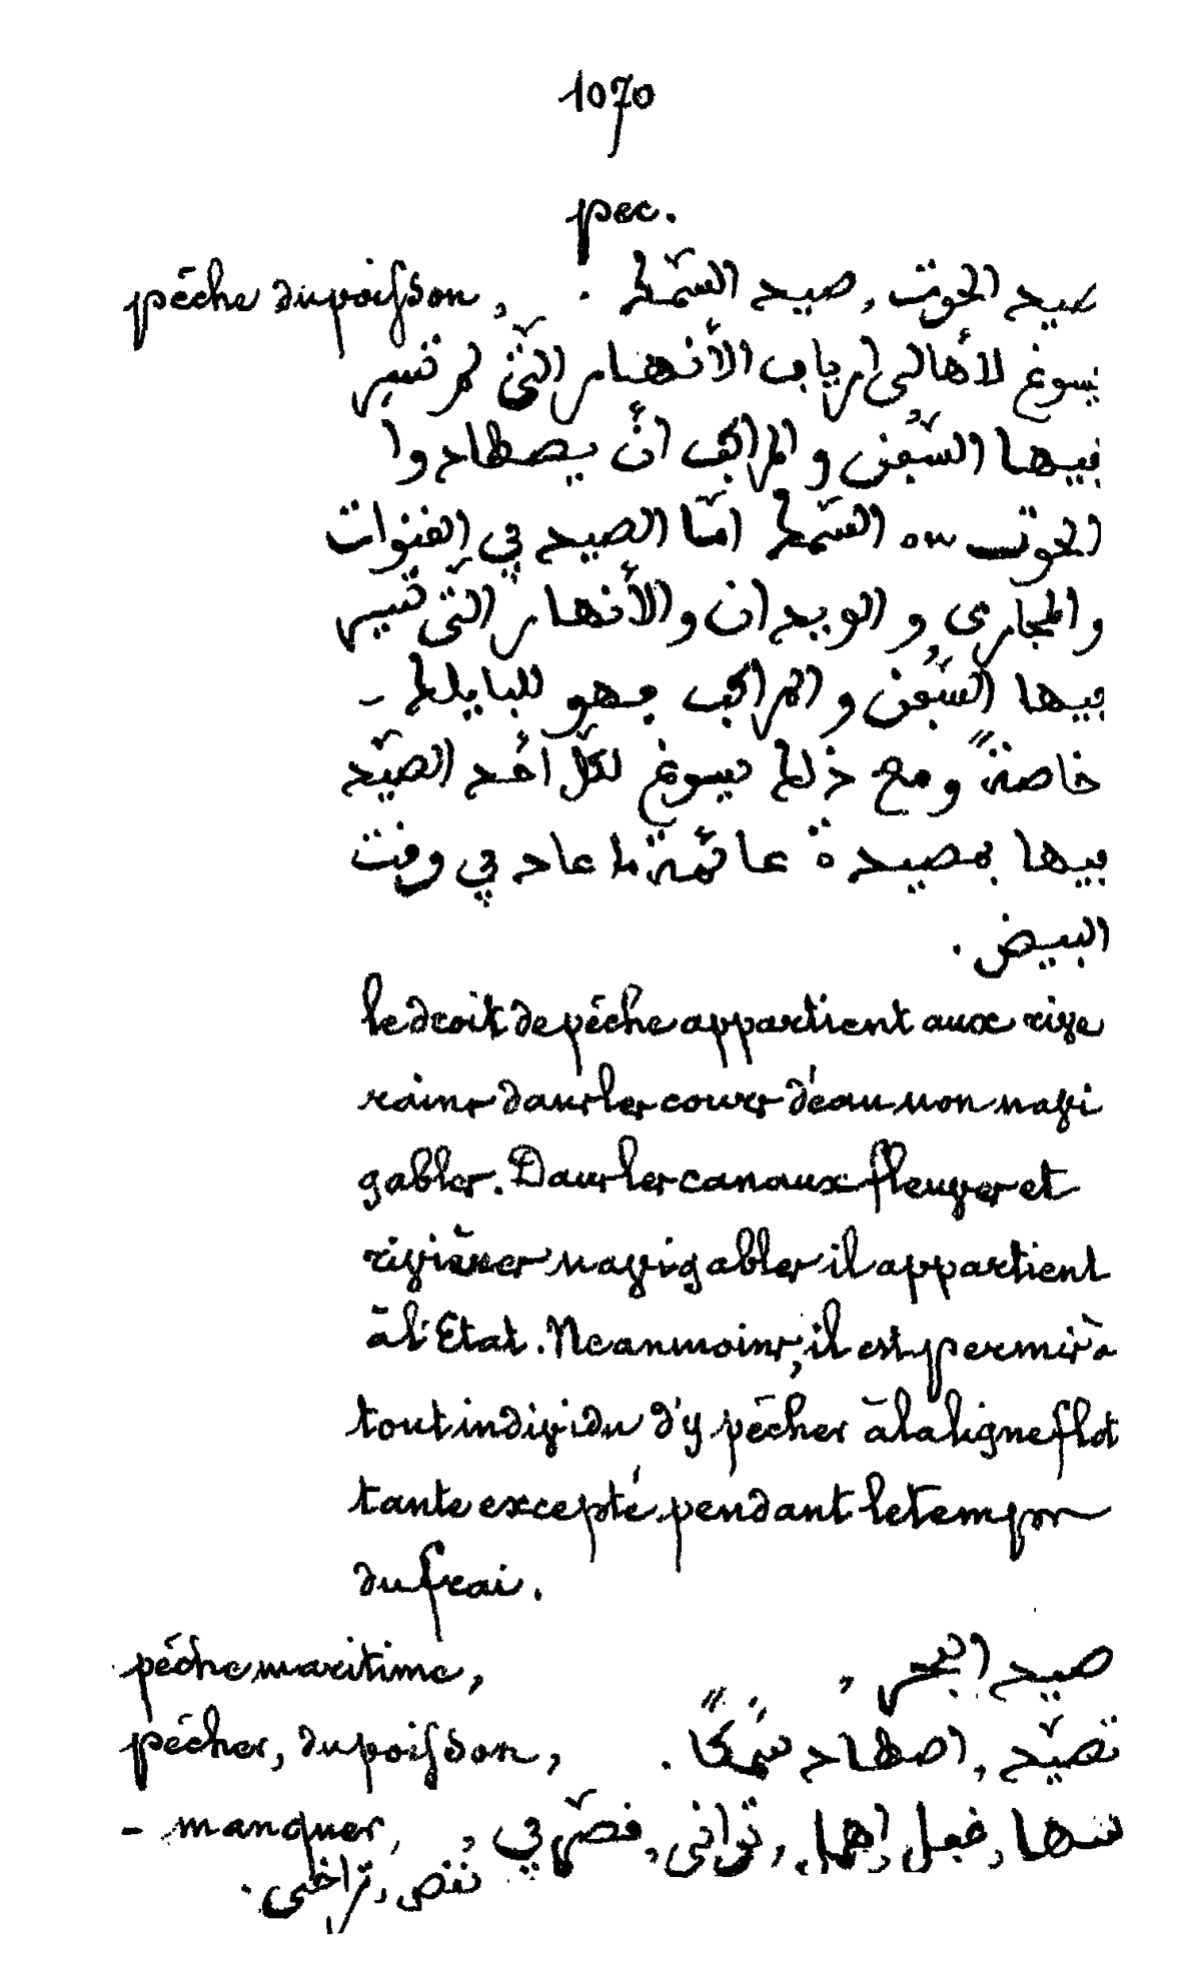 1070
pec.
pêche du poisson, صيد الحوت, صيد السّمك .
يسوغ للأهالى ارباب الأنهار الّتى لم تسير
فيها السّفن والمراكب أن يصطادوا
الحوت ou السّمك امّا الصيد في القنوات
والمجارى والويدان والأنهار الّتى تسير
فيها السّفن والمراكب فهو للبايلك -
خاصةً ومع ذلك يسوغ لكلّ أحد الصيّد
فيها بمصيدة عائمة ما عاد في وقت
البيض .
le droit de pêche appartient aux rive
rains dans les cours d'eau non navi
gables. Dans les canaux fleuves et
rivières navigables il appartient
à l'Etat. Neanmoins, il est permis à
tout individu d'y pêcher à la ligne flot
tante excepté pendant le temps
du frai.
pêche maritime, صيد البحر ,
pêcher, du poisson, تصيّد, اصطاد سَمَكًا .
- manquer, سها, غفل, اهمل, توانى, قصّر في,
نقص, تراخى .